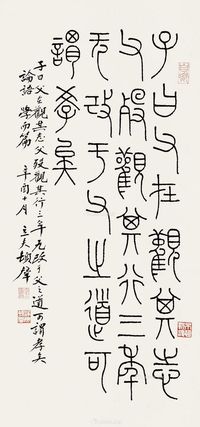 子曰父在觀其志
父殁觀其行三年
无改于父之道可
謂孝矣
子曰父在觀其志父殁觀其行三年无改于父之道可謂孝矣
論語學而篇 辛酉十月